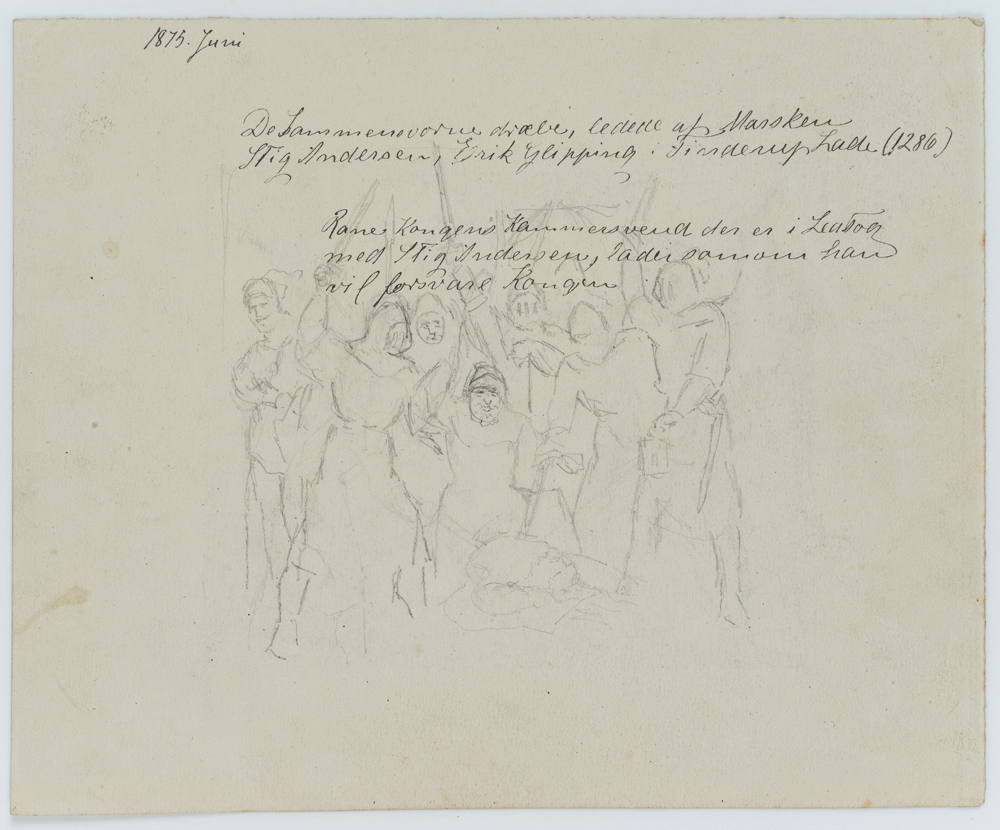 1875. Juni
De Sammensvorne dræbe, ledede af Marsken
Stig Andersen, Erik Glipping i Finderup Lade (1286)
Rane Kongens Kammersvend der er i Ledtog
med Stig Andersen, lader somom han
vil forsvare Kongen